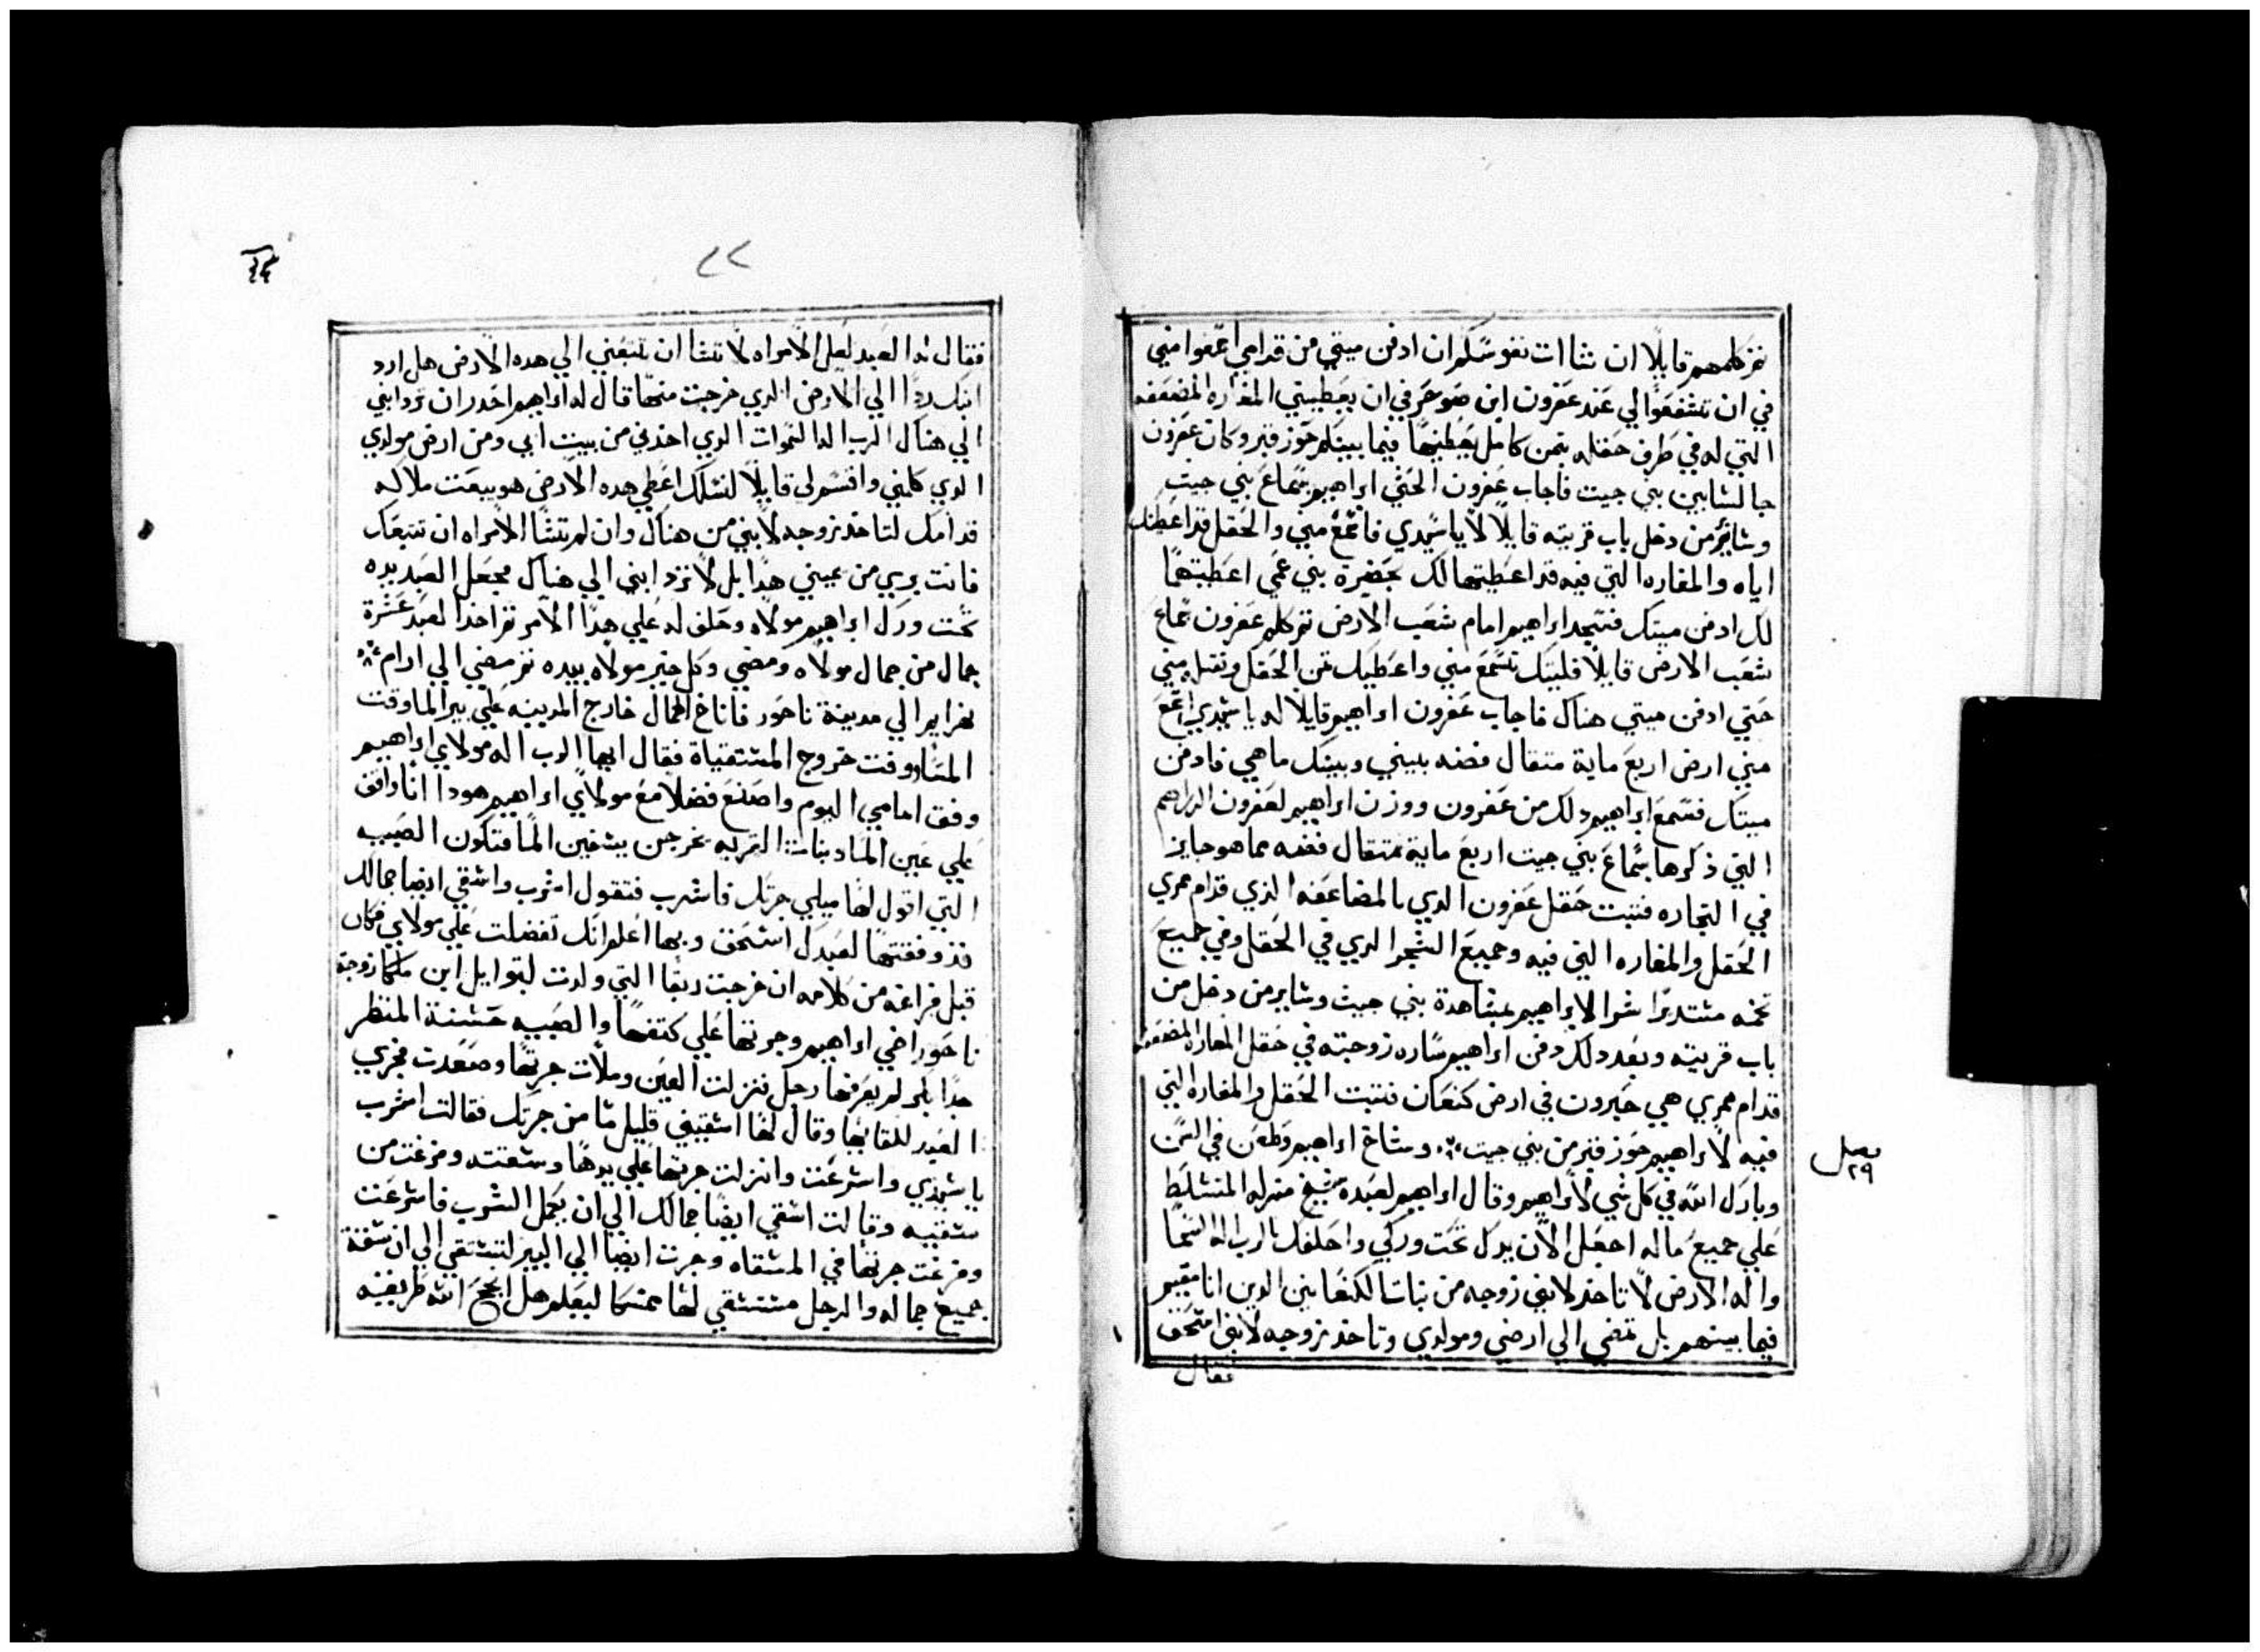 ثم كلمهم قايلًا ان شاات نفوسكم ان ادفن ميتي من قدامي اسمعوا مني
في ان تشفعوا لي عند عفرون ابن صوحر في ان يعطيني المغاره المضعفه
التي له في طرف حقله بثمن كامل يعطيها فيما بينكم حوز قبر وكان عفرون
جالسًا بين بني حيت فاجاب عفرون الحتي ابراهيم بسماع بني حيت
وساير من دخل باب قريته قايلًا لا يا سيدي فاسمع مني والحقل قد اعطيتك
اياه والمغاره التي فيه قد اعطيتها لك بحضرة بني عمي اعطيتهما
لك ادفن ميتك فسجد ابراهيم امام شعب الارض ثم كلم عفرون بسماع
شعب الارض قايلًا فليتك تسمع مني واعطيك ثمن الحقل وتقبل مني
حتي ادفن ميتي هناك فاجاب عفرون ابراهيم قايلًا له يا سيدي اسمع
مني ارض اربع ماية متقال فضه بيني وبينك ما هي فادفن
ميتك فسمع ابراهيم دلك من عفرون ووزن ابراهيم لعفرون الدراهم
التي ذكرها بسماع بني حيت اربع ماية متقال فضه مما هو جايز
في التجاره فتبت حقل عفرون الدي بالمضاعفه الذي قدام ممري
الحقل والمغاره التي فيه وجميع الشجر الدي في الحقل وفي جميع
تخمه مستديرًا شرا لابراهيم بمشاهدة بني حيت وساير من دخل من
باب قريته وبعد دلك دفن ابراهيم ساره زوجته في حقل المغاره المضعفه
قدام ممري هي حبرون في ارض كنعان فتبت الحقل والمغاره التي
فيه لابراهيم حوز قبر من بني حيت وشاخ ابراهيم وطعن في السن
فصل ٢٩
وبارك الله في كل شي لابراهيم وقال ابراهيم لعبده شيخ منزله المتسلط
علي جميع ماله اجعل الان يدك تحت وركي واحلفك بالرب اله السما
واله الارض لا تاخد لابني زوجه من بنات الكنعانيين الدين انا مقيم
فيما بينهم بل تمضي الي ارضي ومولدي وتاخد زوجه لابني اسحق
فقال
٢٢
فقال له العبد لعل الامراه لا تشا ان تتبعني الي هده الارض هل ارد
ابنك ردًا الي الارض الدي خرجت منها قال له ابراهيم احدر ان ترد ابني
الي هناك الرب اله السموات الدي اخدني من بيت ابي ومن ارض مولدي
الدي كلمني واقسم لي قايلًا لنسلك اعطي هده الارض هو يبعت ملاكه
قدامك لتاخد زوجه لابني من هناك وان لم تشا الامراه ان تتبعك
فانت بري من يميني هدا بل لا ترد ابني الي هناك فجعل العبد يده
تحت ورك ابراهيم مولاه وحلف له علي هدا الامر ثم اخد العبد عشرة
جمال من جمال مولاه ومضي وكل خير مولاه بيده ثم مضي الي ارام
نهرايم الي مدينة ناحور فاناخ الجمال خارج المدينه علي بير الما وقت
المسا ووقت خروج المستقياة فقال ايها الرب اله مولاي ابراهيم
وفق امامي اليوم واصنع فضلًا مع مولاي ابراهيم هودا انا واقف
علي عين الما وبنات القريه يخرجن يستقين الما فتكون الصبيه
التي اقول لها ميلي جرتك فاشرب فتقول اشرب واسقي ايضا جمالك
قد وفقتها لعبدك اسحق وبها اعلم انك تفضلت علي مولاي فكان
قبل فراغه من كلامه ان خرجت ربقا التي ولدت لبتوايل ابن ملكا زوجة
ناحور اخي ابراهيم وجرتها علي كتفها والصبيه حسنة المنظر
جدًا بكر لم يعرفها رجل فنزلت العين وملات جرتها وصعدت فجري
العبد للقايها وقال لها اسقيني قليل ما من جرتك فقالت اشرب
يا سيدي واسرعت وانزلت جرتها علي يدها وسقته وفرغت من
سقيه وقالت اسقي ايضًا جمالك الي ان يكمل الشرب فاسرعت
وفرغت جرتها في المسقاه وجرت ايضًا الي البير لتستقي الي ان سقة
جميع جماله والرجل مستسقي لها ممسكا ليعلم هل انجح الله طريقه